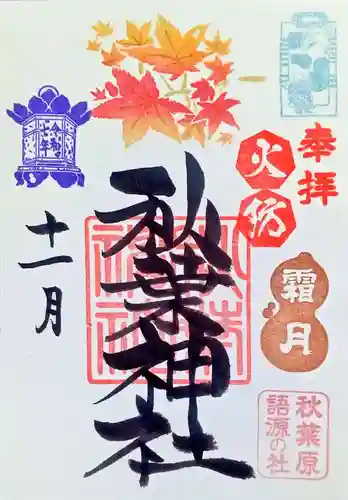 奉拝
火防
霜月
秋葉原
語源の社
秋葉神社
十一月